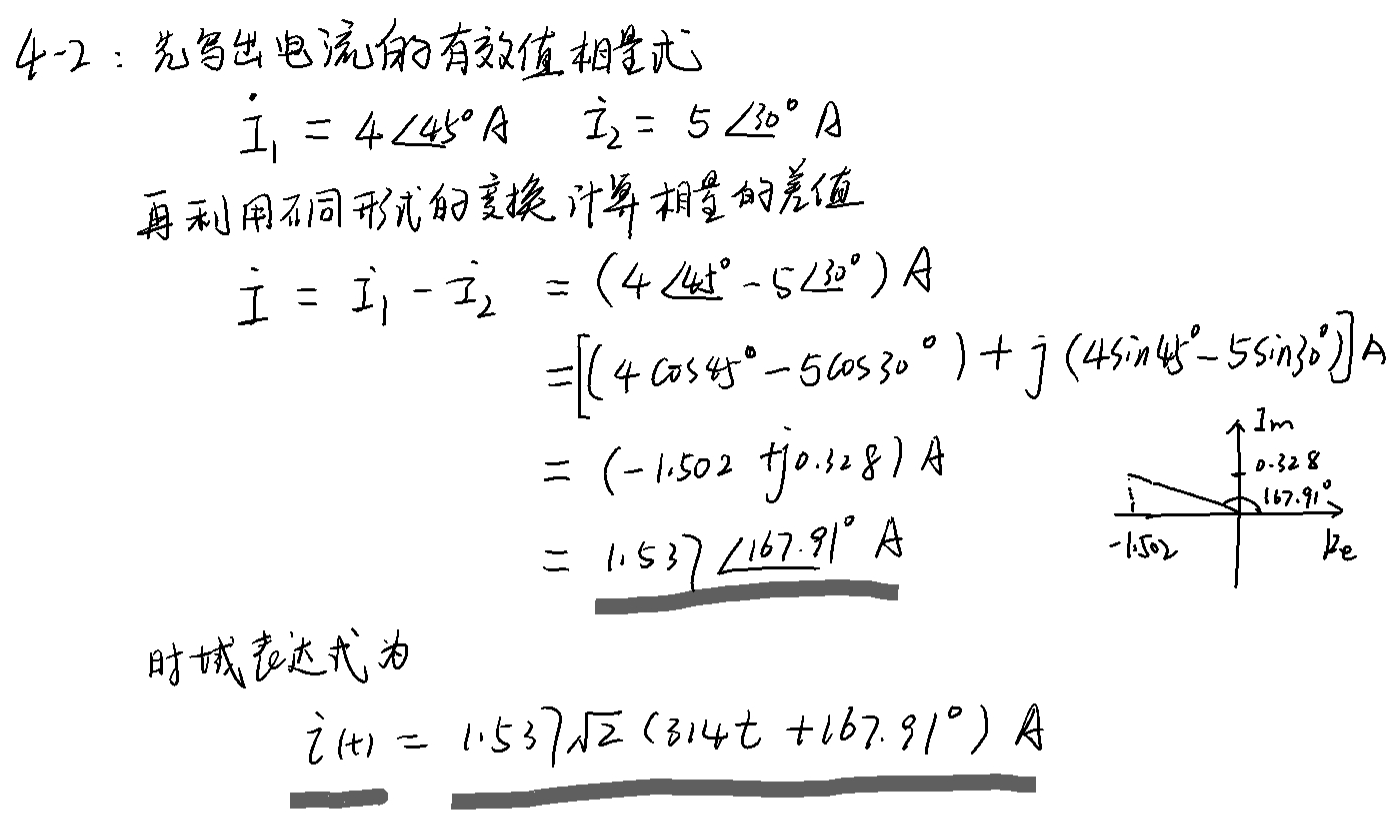 4-2：先写出电流的有效值相量式
İ₁ = 4∠45° A İ₂ = 5∠30° A
再利用不同形式的变换计算相量的差值
İ = İ₁ - İ₂ = (4∠45° - 5∠30°) A
= [(4cos45° - 5cos30°) + j(4sin45° - 5sin30°)] A
= (-1.502 + j0.328) A
= 1.537∠167.91° A
Im
0.328
167.91°
-1.502
Re
时域表达式为
i(t) = 1.537√2 (314t + 167.91°) A